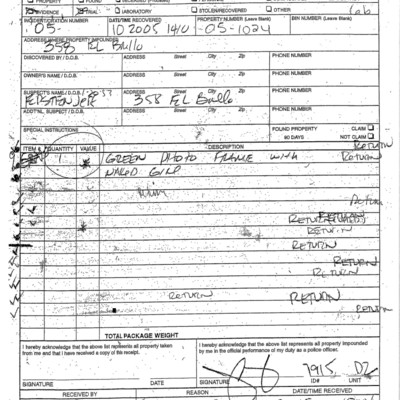 PROPERTY FOUND
EVIDENCE TRIAL LABORATORY STOLEN/RECOVERED OTHER
INCIDENT/CITATION NUMBER DATE/TIME RECOVERED PROPERTY NUMBER (Leave Blank) BIN NUMBER (Leave Blank)
05- 10 2005 1410 -05-1024
ADDRESS WHERE PROPERTY IMPOUNDED
358 EL Brillo
DISCOVERED BY / D.O.B. ADDRESS Street City Zip PHONE NUMBER
OWNER'S NAME / D.O.B. ADDRESS Street City Zip PHONE NUMBER
SUSPECTS NAME / D.O.B. ADDRESS Street City Zip PHONE NUMBER
358 EL Brillo
ADDT'NL. SUSPECT / D.O.B. ADDRESS Street City Zip PHONE NUMBER
SPECIAL INSTRUCTIONS FOUND PROPERTY CLAIM
90 DAYS NOT CLAIM
RETURN
ITEM # QUANTITY VALUE DESCRIPTION
1 GREEN PHOTO FRAME WITH RETURN
NAKED GIRL
RETURN
RETURN
RETURN
RETURN
RETURN
RETURN
RETURN
RETURN RETURN
RETURN
TOTAL PACKAGE WEIGHT
I hereby acknowledge that the above list represents all property taken
from me and that I have received a copy of his receipt.
I hereby acknowledge that the above list represents all property impounded
by me in the official performance of my duty as a police officer.
7915 D2
SIGNATURE SIGNATURE ID# UNIT
RECEIVED BY REASON DATE/TIME RECEIVED